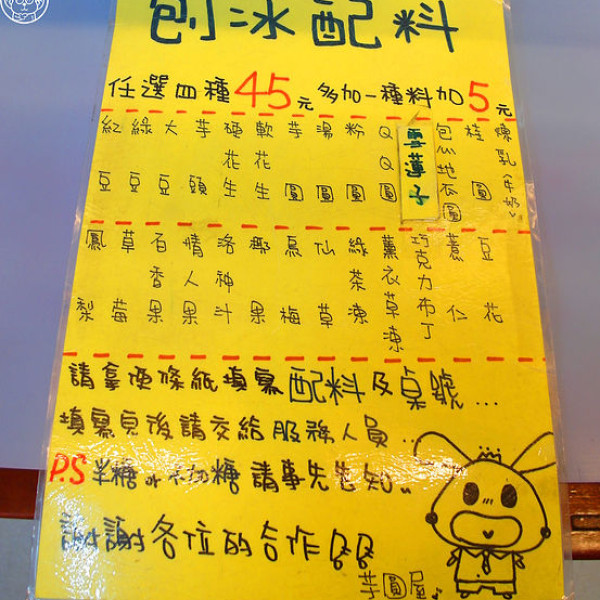 刨冰配料
任選四種45元多加一種料加5元
紅豆 綠豆 大豆 芋頭 硬花生 軟花生 芋圓 湯圓 粉圓 QQ圓 雪蓮子 包心地瓜圓 桂圓 煉乳(牛奶)
鳳梨 草莓 百香果 情人果 洛神汁 椰果 烏梅 仙草 綠茶凍 薰衣草凍 巧克力布丁 薏仁 豆花
請拿便條紙填寫配料及桌號...
填寫完後請交給服務人員...
P.S半糖or不加糖請事先告知
謝謝各位的合作
芋圓屋